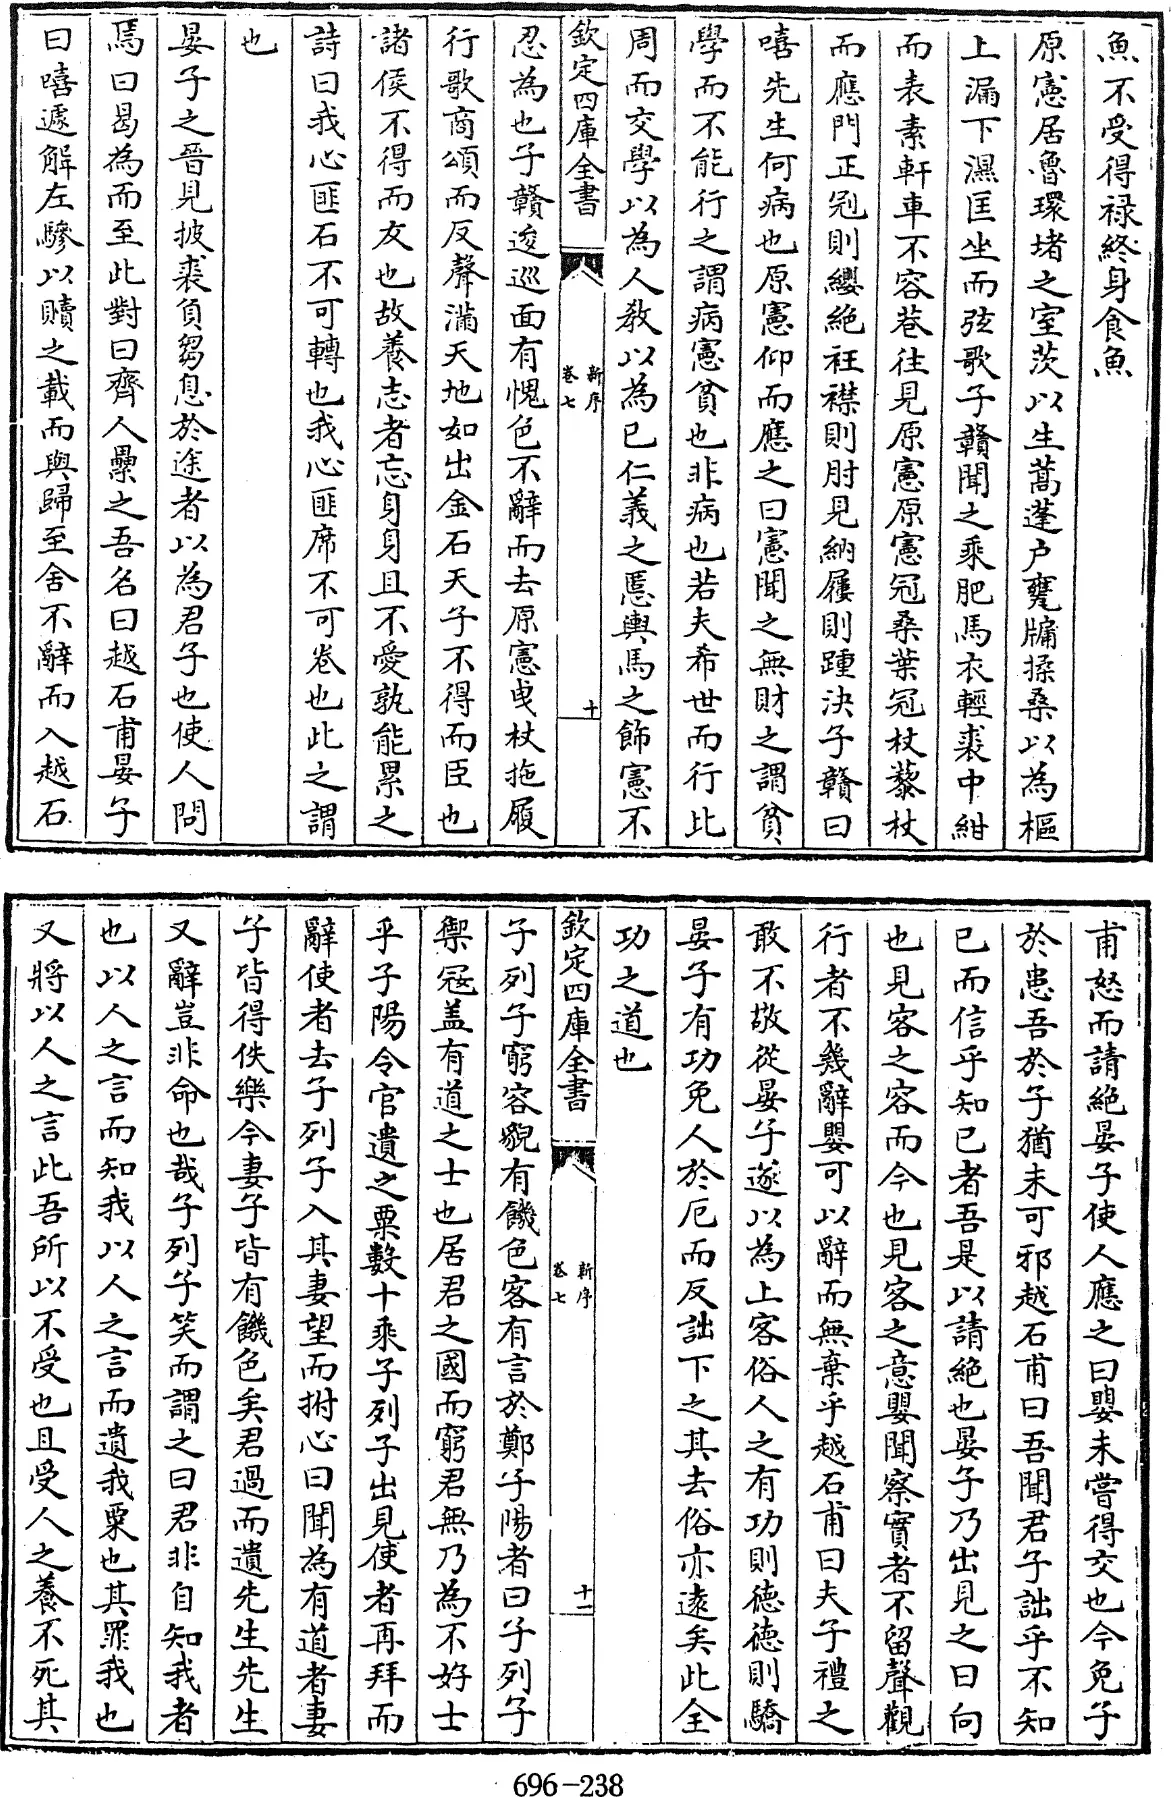 魚不受得禄終身食魚
原憲居魯環堵之室茨以生蒿蓬户甕牖揉桑以為樞
上漏下濕匡坐而弦歌子贛聞之乘肥馬衣輕裘中紺
而表素軒車不容巷往見原憲原憲冠桑葉冠杖藜杖
而應門正冠則纓絶衽襟則肘見納屨則踵決子贛曰
嘻先生何病也原憲仰而應之曰憲聞之無財之謂貧
學而不能行之謂病憲貧也非病也若夫希世而行比
周而交學以為人教以為已仁義之慝輿馬之飾憲不
欽定四庫全書
新序
卷七
十
忍為也子贛逡巡面有愧色不辭而去原憲曳杖拖履
行歌商頌而反聲滿天地如出金石天子不得而臣也
諸侯不得而友也故養志者忘身身且不愛孰能累之
詩曰我心匪石不可轉也我心匪席不可卷也此之謂
也
晏子之晋見披裘負芻息於途者以為君子也使人問
焉曰曷為而至此對曰齊人纍之吾名曰越石甫晏子
曰嘻遽解左驂以贖之載而與歸至舍不辭而入越石
甫怒而請絶晏子使人應之曰嬰未嘗得交也今免子
於患吾於子猶未可邪越石甫曰吾聞君子詘乎不知
已而信乎知已者吾是以請絶也晏子乃出見之曰向
也見客之容而今也見客之意嬰聞察實者不留聲觀
行者不幾辭嬰可以辭而無棄乎越石甫曰夫子禮之
敢不敬從晏子遂以為上客俗人之有功則德德則驕
晏子有功免人於厄而反詘下之其去俗亦遠矣此全
功之道也
欽定四庫全書
新序
卷七
十一
子列子窮容貌有饑色客有言於鄭子陽者曰子列子
禦冦盖有道之士也居君之國而窮君無乃為不好士
乎子陽令官遺之粟數十乘子列子出見使者再拜而
辭使者去子列子入其妻望而拊心曰聞為有道者妻
子皆得佚樂今妻子皆有饑色矣君過而遺先生先生
又辭豈非命也哉子列子笑而謂之曰君非自知我者
也以人之言而知我以人之言而遺我粟也其罪我也
又將以人之言此吾所以不受也且受人之養不死其
696-238